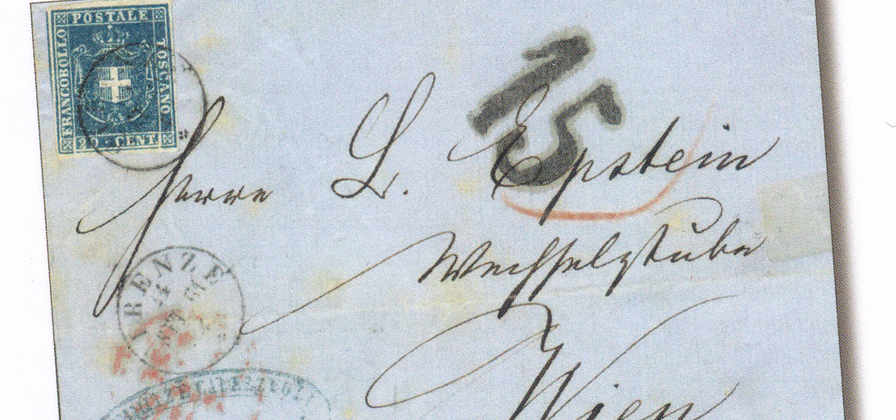 FRANCOBOLLO POSTALE TOSCANO
20 CENT.
15
Herrn L. Epstein
Wechselstube
FIRENZE
Wien